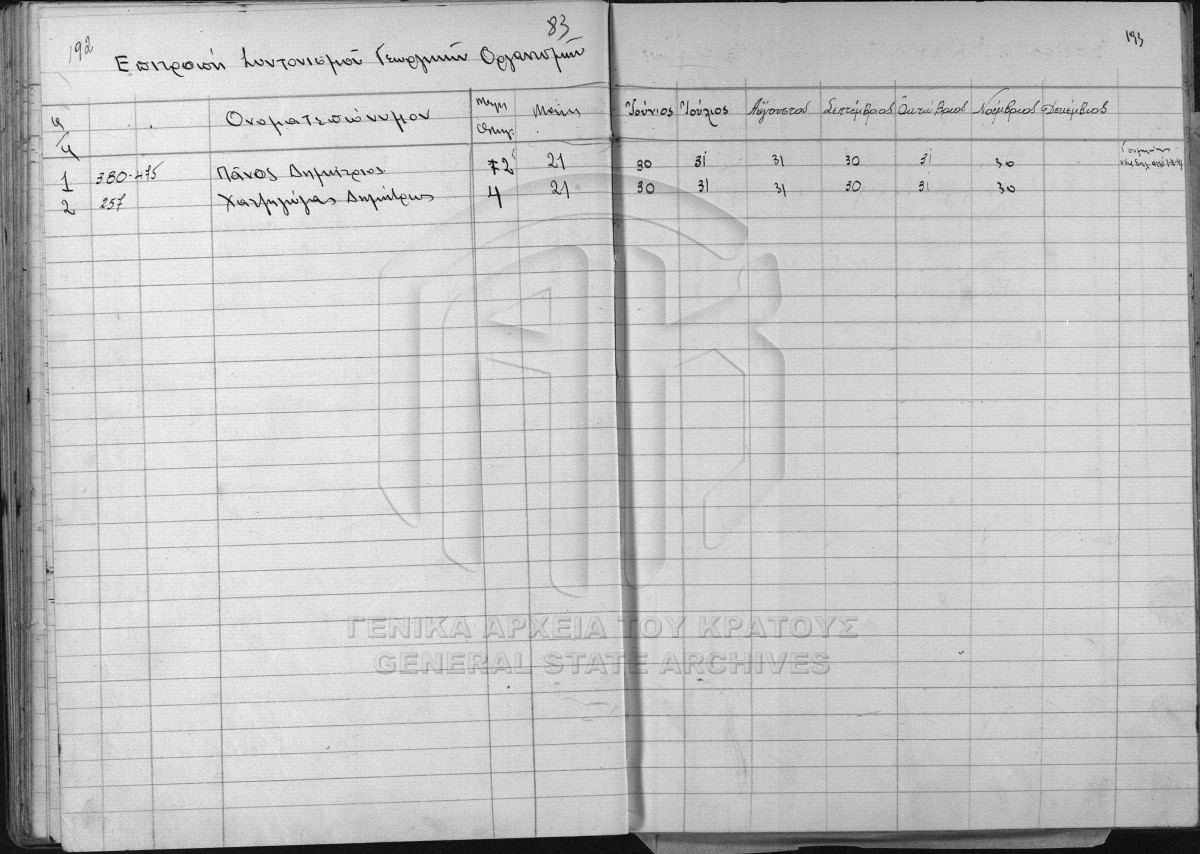 192
83
193
Επιτροπή Συντονισμού Γεωργικών Οργανισμών
α/α Ονοματεπώνυμον Μέλη Οικογ. Μάϊος Ἰούνιος Ἰούλιος Αὔγουστος Σεπτέμβριος Ὀκτώβριος Νοέμβριος Δεκέμβριος
1 380-475 Πάνος Δημήτριος 2 21 30 31 31 30 31 30
2 257 Δημήτριος 4 21 30 31 31 30 31 30
ΓΕΝΙΚΑ ΑΡΧΕΙΑ ΤΟΥ ΚΡΑΤΟΥΣ
GENERAL STATE ARCHIVES